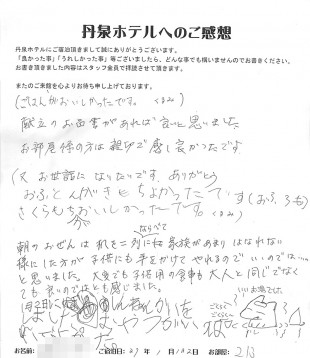 丹泉ホテルへのご感想
丹泉ホテルにご宿泊頂きまして誠にありがとうございます。
「良かった事」「うれしかった事」等ございましたら、どんな事でも構いませんのでお書きください。
お書き頂きました内容はスタッフ全員で拝読させて頂きます。
またのご来館を心よりお待ち申し上げております。
(ごはんがおいしかったです。
献立のお品書があれば良いと思いました
お部屋係の方は親切で感じ良かったです
又お世話になりたいです。ありがとう
おふとんがきもちよかったです(おふろも)
さくらもちおいしかったです。
ならべて
朝のおぜんは 机を 列に 家族があまりはなれない
様にした方が子供にも手をかけてやれるのでいいのでは…
と思いました。大変でも子供用の食事も大人と同じでなく
ても良いのではとも感じました。
いい湯でした
お名前: ご宿泊日:27年1月 日 お部屋: 213